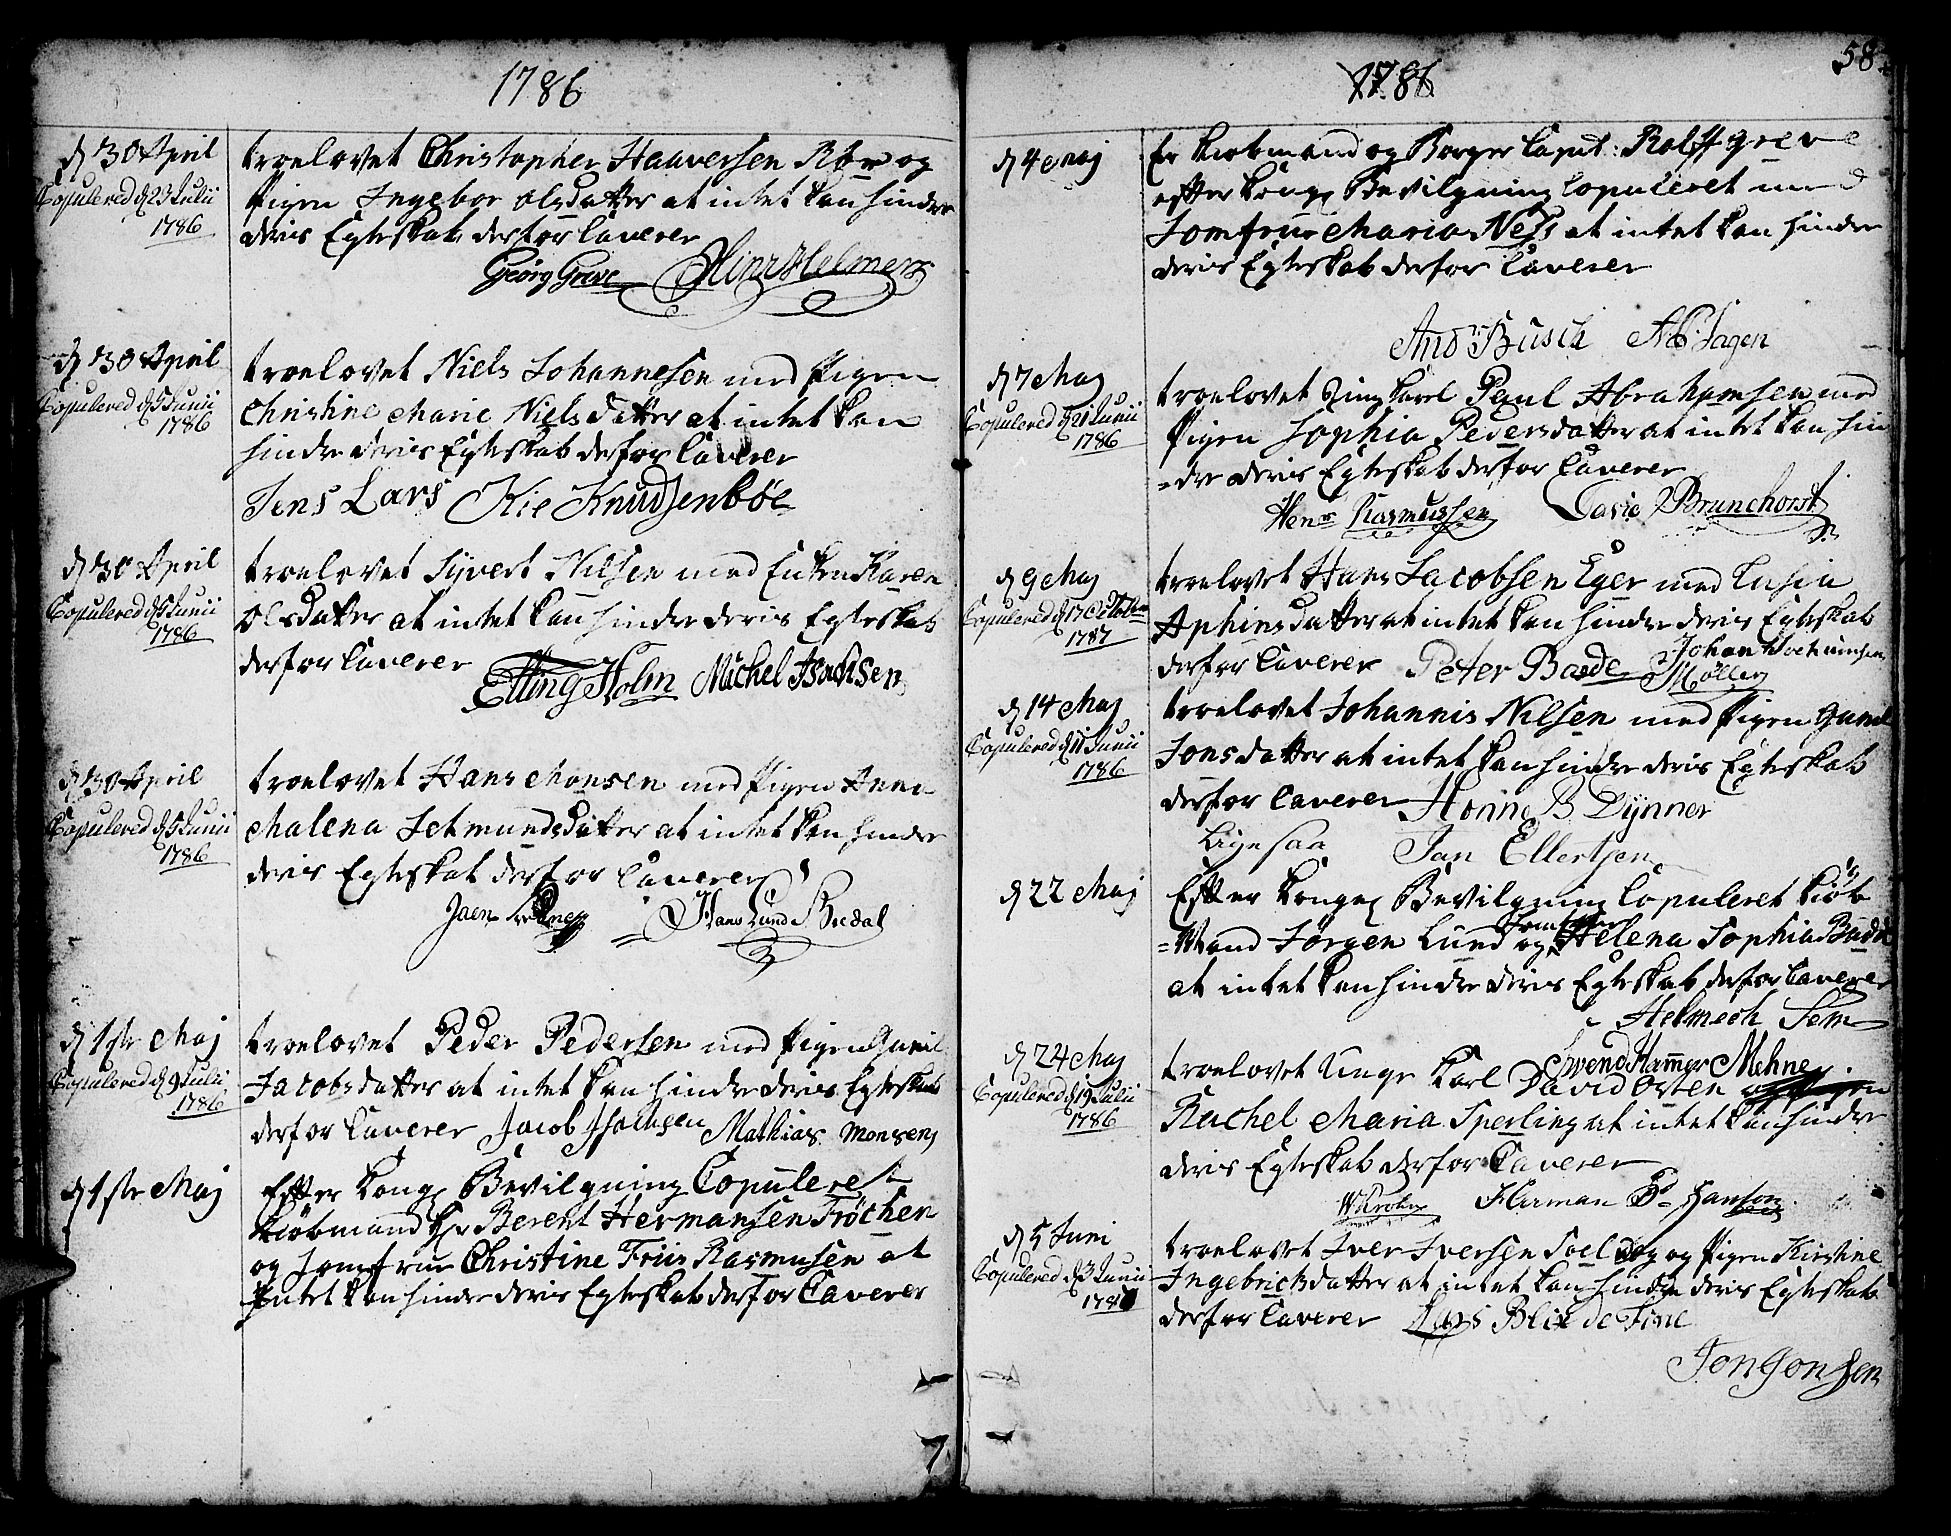 1786
d 30 April
Copulered d 23 Julii
1786
troelovet Christopher Haaversen Roe og
Pigen Ingebor Olsdatter at intet kan hindre
deris Egteskab derfor Caverer
Georg Greve Hinr Helmers
d 30 April
Copulered d 5 Junii
1786
troelovet Niels Johannesen med Pigen
Christine Marie Nielsdatter at intet kan
hindre deris Egteskab derfor Caverer
Jens Lars Kie Knudsenbøe
d 30 April
Copulered d 5 Junii
1786
troelovet Syvert Nilsen med Enken Karen
Olsdatter at intet kan hindre deris Egteskab
derfor Caverer
Elling Holm Michel Isachsen
d 30 April
Copulered d 5 Junii
1786
troelovet Hans Monsen med Pigen Anne
Malena Setmundsdatter at intet kan hindre
deris Egteskab derfor Caverer
Jaen Hans Lund Bredal
d 1ste Maj
Copulered d 9 Julii
1786
troelovet Peder Pedersen med Pigen Gunil
Jacobsdatter at intet kan hindre deris Egteskab
derfor Caverer Jacob Jsachsen Mathias Monsen
d 1ste Maj
Efter Kong Bevilgning Copuleret
Kiøbmand Hr Berent Hermansen Frøchen
og Jomfrue Christine Friis Rasmusen at
Intet kan hindre deris Egteskab derfor Caverer
58
1786
d 4 Maj
Er Kiobmand og Borger Capit: Rolff Greve
efter Kong Bevilgning Copuleret med
Jomfrue Maria Ness at intet kan hindre
deris Egteskab derfor Caverer
And Busch AB Fagen
d 7 Maj
Copulered d 21 Junii
1786
troelovet Ung karl Paul Abrahamsen med
Pigen Sophia Pedersdatter at intet kan hin
=dre deris Egteskab derfor Caverer
Hen Rasmussen Brunchorst
d 9 Maj
Copulered d 17 Octobr
1787
troelovet Hans Jacobsen Eger med
Aphinsdatter at intet kan hindre deris Egteskab
derfor Caverer Peter Baade Johan
Møller
d 14 Maj
Copulered d 11 Junii
1786
troelovet Johannis Nilsen med Pigen Guniel
Jonsdatter at intet kan hindre deris Egteskab
derfor Caverer Honine B Dynner
Ligesaa Jan Ellertsen
d 22 Maj
Efter Konge Bevilgning Copuleret Kiøb
=Mand Jørgen Lund og Jomfrue Helena Sophia Budde
at intet kan hindre deris Egteskab derfor Caverer
Helmech Sem
Svend Hammer Mehne
d 24 Maj
Copulered d 19 Julii
1786
troelovet Unge Karl David Osten
Rachel Maria Sperling at intet kan hindre
deris Egteskab derfor Caverer
Harman P Hanson
d 5 Juni
Copulered d 3 Junii
178
troelovet Iver Iversen og Pigen Kirstine
Ingebricksdatter at intet kan hindre deris Egteskab
derfor Caverer Lars Blix de Fine
Jon Jonsen